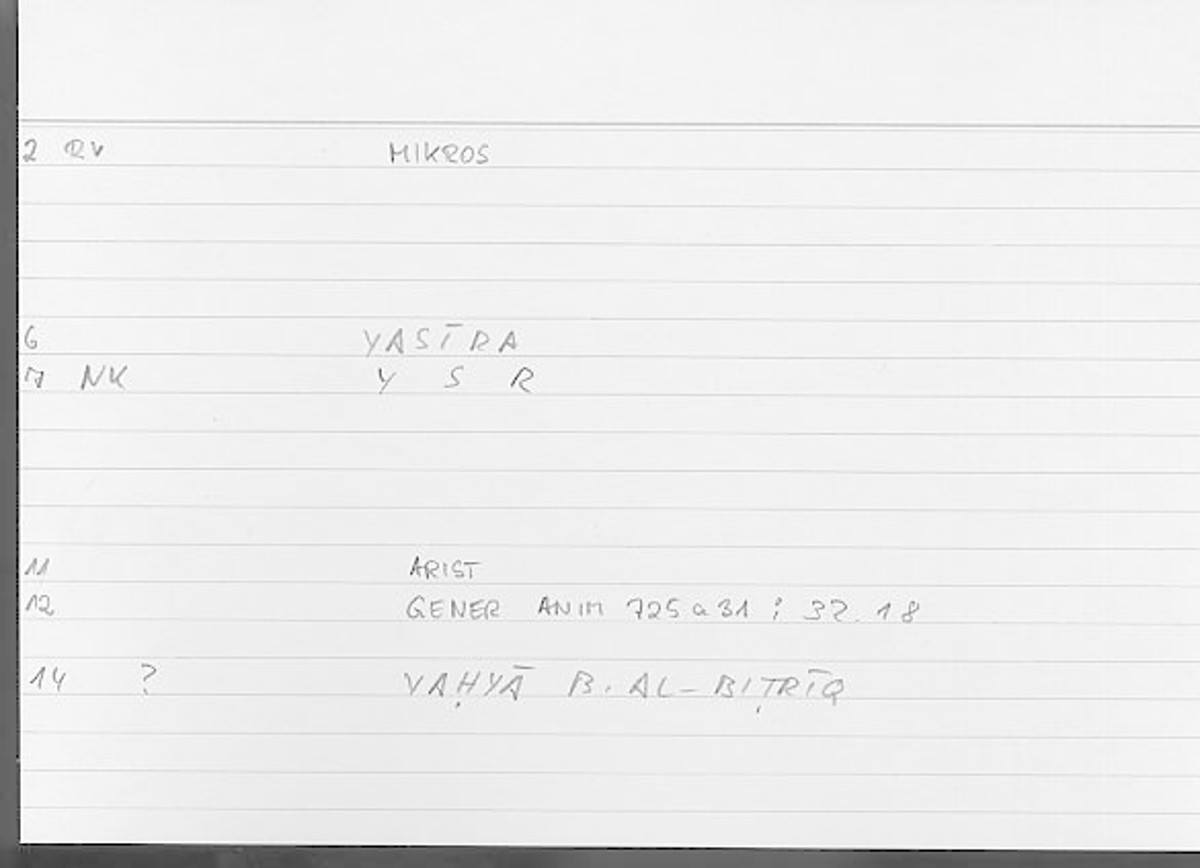 2 RV MIKROS
6 YASĪRA
7 NK Y S R
11 ARIST
12 GENER ANIM 725a31 ; 32.18
14 ? YAḤYĀ B. AL-BIṬRĪQ